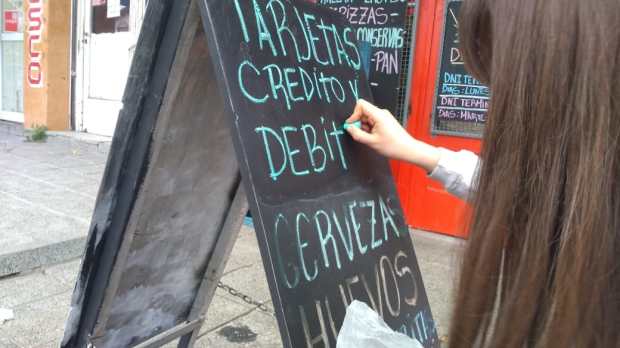 TARJETAS
CREDITO Y
DEBIT
CERVEZA
HUEVOS
PIZZAS-
CONSERVAS
-PAN
DNI TERMIN
DIAS: LUNES
DNI TERMINA
DIAS: MARTE